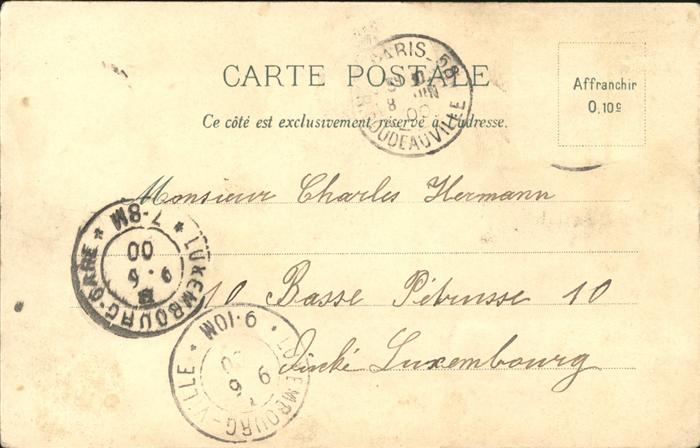 CARTE POSTALE
Ce côté est exclusivement réservé à l'adresse.
Affranchir
0,10c
PARIS_68
R. DOUDEAUVILLE
8 JUIN
00
Monsieur Charles Hermann
10 Basse Pétrusse 10
Luxembourg
LUXEMBOURG-GARE * 7-8M *
9.6
00
LUXEMBOURG-VILLE * 9-10M *
9 6
00